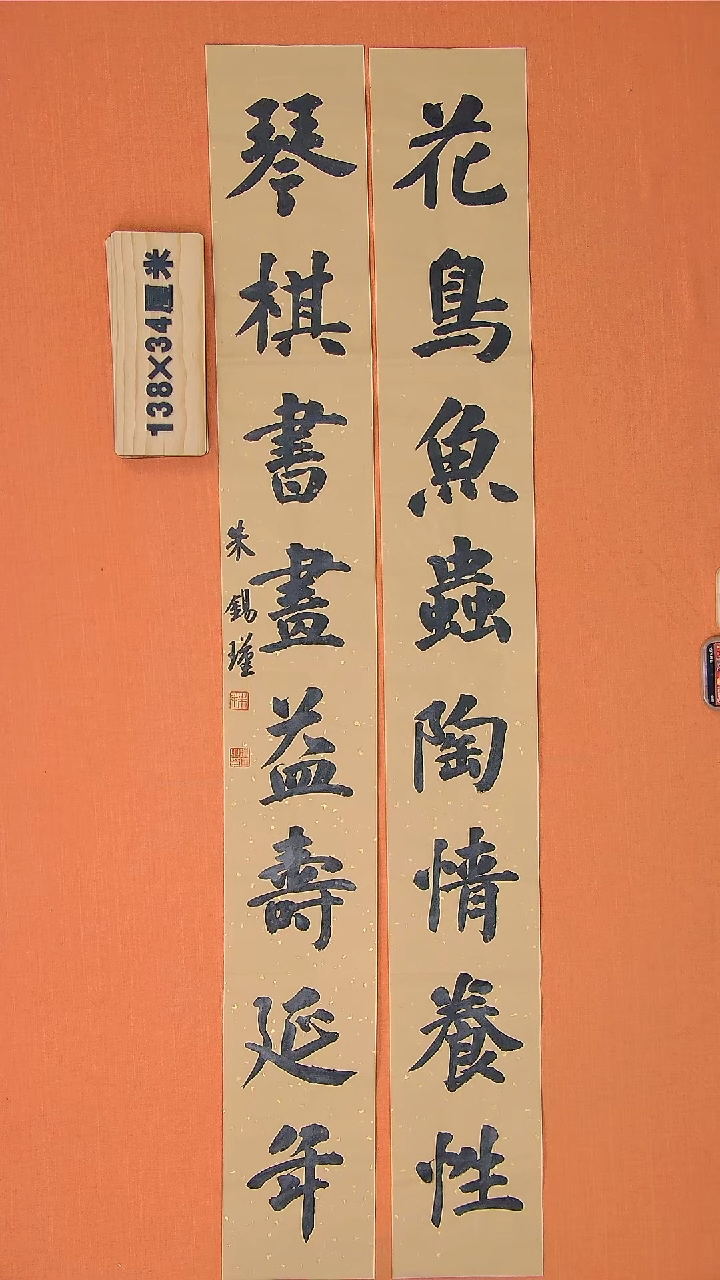 花鳥魚蟲陶情養性
琴棋書畫益壽延年
朱錫瑾
138×34厘米